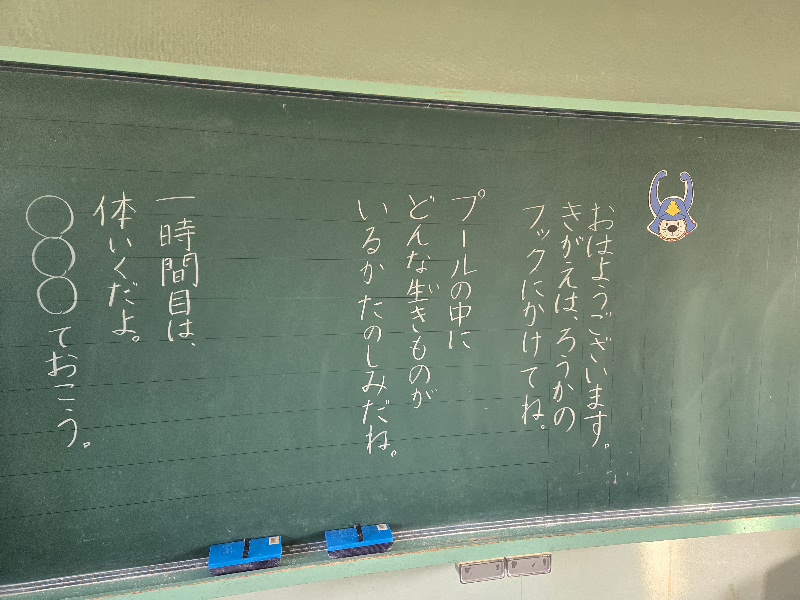 おはようございます。
きがえは、ろうかの
フックにかけてね。
プールの中に
どんな生きものが
いるかたのしみだね。
一時間目は、
体いくだよ。
〇〇〇ておこう。